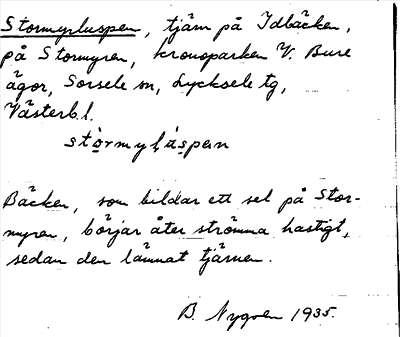 Stormyrluspen, tjärn på Idbäcken,
på Stormyren, kronoparken V. Bure
ägor, Sorsele sn, Lycksele tg,
Västerb.l.
stòrmyḷùspen
Bäcken, som bildar ett sel på Stor-
myren, börjar åter strömma hastigt,
sedan den lämnat tjärnen.
B. Nygren 1935.